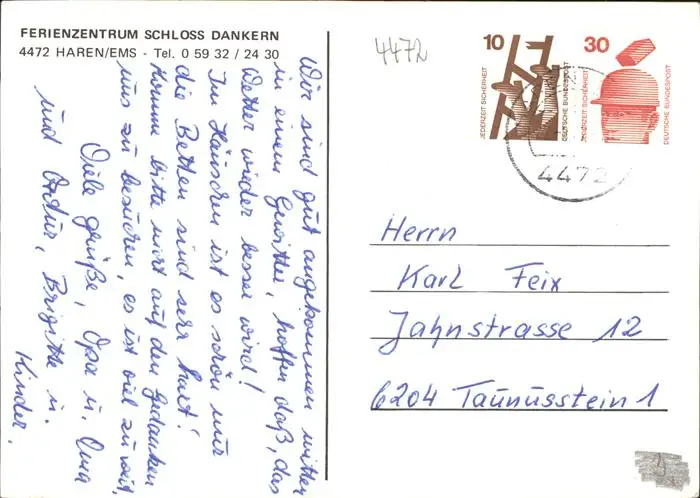 FERIENZENTRUM SCHLOSS DANKERN
4472 HAREN/EMS - Tel. 0 59 32 / 24 30
4472
10
JEDERZEIT SICHERHEIT
DEUTSCHE BUNDESPOST
30
JEDERZEIT SICHERHEIT
DEUTSCHE BUNDESPOST
4472
Wir sind gut angekommen mitten
in einem Gewitter, hoffen daß, das
Wetter wieder besser wird!
Im Häuschen ist es schön nur
die Betten sind sehr hart!
Komme bitte nicht auf den Gedanken
uns zu besuchen, es ist viel zu weit,
Viele Grüße, Opa u. Oma
und Artur, Brigitte u.
Kinder.
Herrn
Karl Feix
Jahnstrasse 12
6204 Taunusstein 1